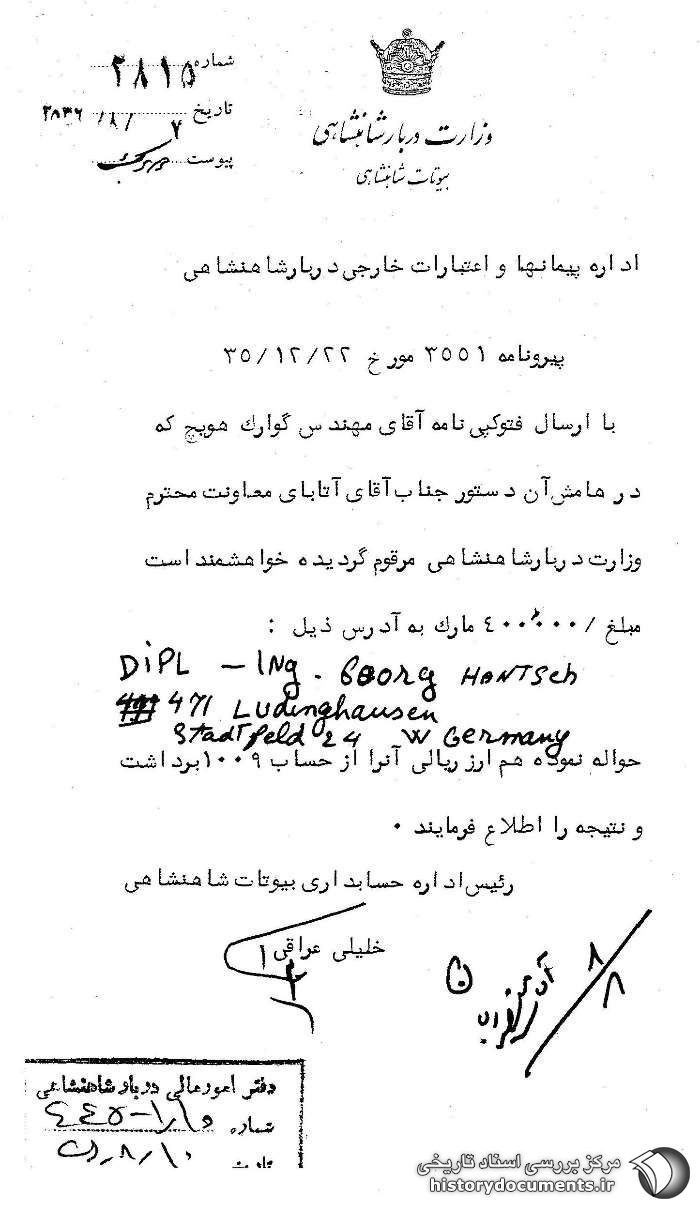 شماره ۲۸۱۵
تاریخ ۲۵۳۶/۸/۷
پیوست
وزارت دربار شاهنشاهی
بیوتات شاهنشاهی
اداره پیمانها و اعتبارات خارجی دربار شاهنشاهی
پیرونامه ۳۵۵۱ مورخ ۳۵/۱۲/۲۲
با ارسال فتوکپی نامه آقای مهندس گوارك هویچ که
در هامش آن دستور جناب آقای آتابای معاونت محترم
وزارت دربار شاهنشاهی مرقوم گردیده خواهشمند است
مبلغ /۴۰۰٬۰۰۰ مارك به آدرس ذیل :
DiPL - ING. GEORG HANTSCH
471 Ludinghausen
Stadtfeld 24 W Germany
حواله نموده هم ارز ریالی آنرا از حساب ۱۰۰۹ برداشت
و نتیجه را اطلاع فرمایند ۰
رئیس اداره حسابداری بیوتات شاهنشاهی
خلیلی عراقی
۸/۸
دفتر امور مالی دربار شاهنشاهی
شماره
تاریخ
مرکز بررسی اسناد تاریخی
historydocuments.ir